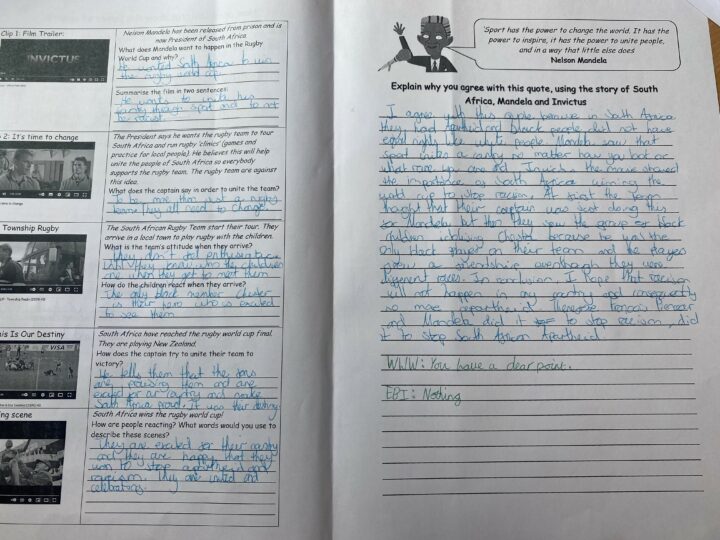 Clip 1: Film Trailer:
INVICTUS
Nelson Mandela has been released from prison and is
now President of South Africa
What does Mandela want to happen in the Rugby
World Cup and why?
He wanted South Africa to win
the rugby world cup
Summarise the film in two sentences:
He wants to unite his
country through sport and to not
be racist.
2: It's time to change
The President says he wants the rugby team to tour
South Africa and run rugby 'clinics' (games and
practice for local people). He believes this will help
unite the people of South Africa so everybody
supports the rugby team. The rugby team are against
this idea.
What does the captain say in order to unite the team?
To be more than just a rugby
they all need to change
Township Rugby
The South African Rugby Team start their tour. They
arrive in a local town to play rugby with the children.
What is the team's attitude when they arrive?
They don't
until they the children
when they get to meet them
How do the children react when they arrive?
The only black member Chester
is their who is excited
to see them
his Is Our Destiny
VISA
South Africa have reached the rugby world cup final.
They are playing New Zealand.
How does the captain try to unite their team to
victory?
He tells them that the
are them and are
excited for our country and make
South Africa proud. It was their destiny
ng scene
South Africa wins the rugby world cup!
How are people reacting? What words would you use to
describe these scenes?
They are excited for their country
and they are happy that they
won to stop apartheid and
racism. They are united and
celebrating.
'Sport has the power to change the world. It has the
power to inspire, it has the power to unite people,
and in a way that little else does
Nelson Mandela
Explain why you agree with this quote, using the story of South
Africa, Mandela and Invictus
I agree with this quote because in South Africa
they had apartheid and black people did not have
equal rights like white people. Mandela saw that
Sport unites a country no matter how you look or
what race you are and Invictus the movie showed
the importance of South Africa winning the
world cup to stop racism. At first the team
thought that their captain was just doing this
for Mandela but then they saw the group of black
children Chester because he was the
only black player on their team and the players
grew a friendship eventhough they were
different races. In conclusion, I hope that racism
will not happen in my country and
no more apartheid.
and Mandela did it to stop racism, did
it to stop South African Apartheid.
WWW: You have a clear point.
EBI: Nothing